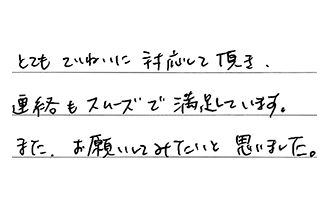 とても ていねいに 対応して頂き、
連絡もスムーズで満足しています。
また、お願いしてみたいと思いました。